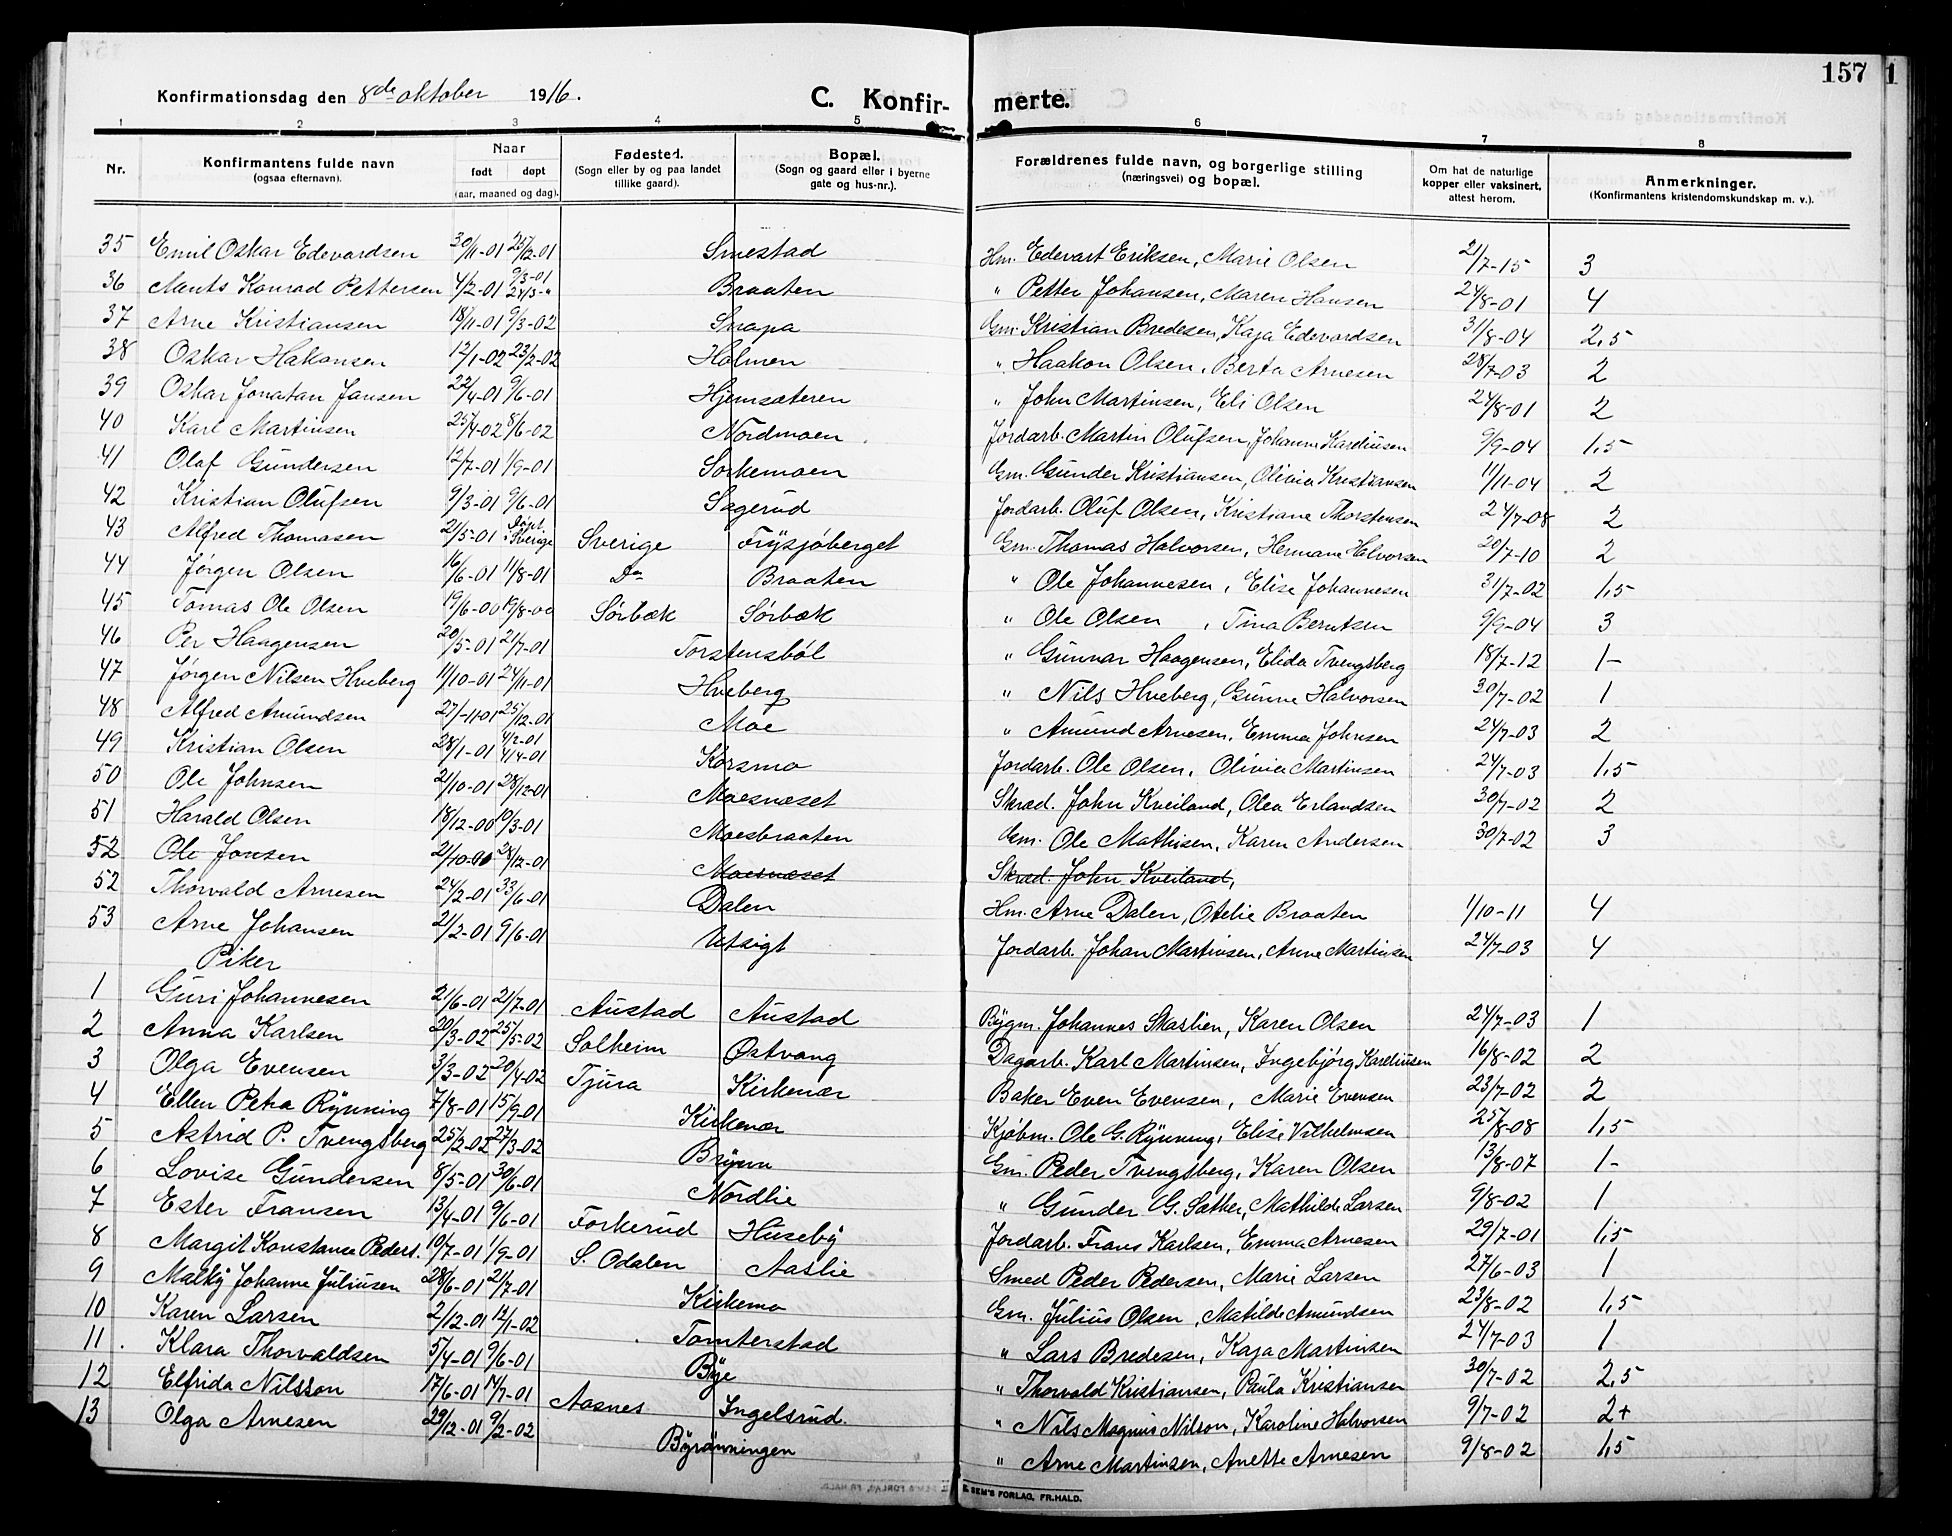 157 1
Konfirmationsdag den 8de oktober 1916. C. Konfir- merte.
1 2 3 4 5 6 7 8
Nr. Konfirmantens fulde navn (ogsaa efternavn). Naar født døpt (aar, maaned og dag). Fødested. (Sogn eller by og paa landet tillike gaard). Bopæl. (Sogn og gaard eller i byerne gate og hus-nr.). Forældrenes fulde navn, og borgerlige stilling (næringsvei) og bopæl. Om hat de naturlige kopper eller vaksinert, attest herom. Anmerkninger. (Konfirmantens kristendomskundskap m. v.).
35 Emil Oskar Edevardsen 30/11-01 25/12-01 Smestad Hm. Edevart Eriksen, Marie Olsen 21/7-15 3
36 Ments Konrad Pettersen 4/2-01 9/3-01 24/3-" Braaten " Petter Johansen, Maren Hansen 24/8-01 4
37 Arne Kristiansen 18/11-01 9/3-02 Snapa Gm. Kristian Bredesen, Kaja Edevardsen 31/8-04 2,5
38 Oskar Hakonsen 12/1-02 23/2-02 Holmen " Haakon Olsen, Berta Arnesen 28/7-03 2
39 Oskar Jonatan Jansen 22/4-01 9/6-01 Hjemsæteren " John Martinsen, Eli Olsen 24/8-01 2
40 Karl Martinsen 25/4-02 8/6-02 Nordmoen Jordarb. Martin Olufsen, Johanne Kareliusen 9/9-04 1,5
41 Olaf Gundersen 12/7-01 1/9-01 Sorkemoen Gm. Gunder Kristiansen, Olivia Kristiansen 11/11-04 2
42 Kristian Olufsen 9/3-01 9/6-01 Sagerud Jordarb. Oluf Olsen, Kristiane Thorstensen 24/7-08 2
43 Alfred Thomasen 21/5-01 Døpt i Sverige Sverige Frysjøberget Gm. Thomas Halvorsen, Hermane Halvorsen 20/7-10 2
44 Jørgen Olsen 16/6-01 11/8-01 Do Braaten " Ole Johannesen, Elise Johannesen 31/7-02 1,5
45 Tomas Ole Olsen 19/6-00 19/8-00 Sørbæk Sørbæk " Ole Olsen, Tina Berntsen 9/9-04 3
46 Per Haagensen 20/5-01 21/7-01 Torstensbøl " Gunnar Haagensen, Elida Tvengsberg 18/7-12 1-
47 Jørgen Nilsen Hveberg 11/10-01 24/11-01 Hveberg " Nils Hveberg, Gunne Halvorsen 30/7-02 1
48 Alfred Amundsen 27/-11-01 25/12-01 Moe " Amund Arnesen, Emma Johnsen 24/7-03 2
49 Kristian Olsen 28/1-01 4/2-01 4/4-01 Korsmo Jordarb. Ole Olsen, Olivia Martinsen 24/7-03 1,5
50 Ole Johnsen 21/10-01 28/12-01 Moesnæset Skræd. John Kveiland, Olea Erlandsen 30/7-02 2
51 Harald Olsen 18/12-00 10/3-01 Moesbraaten Gm. Ole Mathisen, Karen Andersen 30/7-02 3
52 Ole Jonsen 21/10-01 28/12-01 Moesnæset Skræd. John Kveiland,
52 Thorvald Arnesen 24/2-01 33/6-01 Dalen Hm. Arne Dalen, Otelie Braaten 1/10-11 4
53 Arne Johansen 21/2-01 9/6-01 Utsigt Jordarb. Johan Martinsen, Anne Martinsen 24/7-03 4
Piker
1 Guri Johannesen 21/6-01 21/7-01 Austad Austad Bygm. Johannes Skaslien, Karen Olsen 24/7-03 1
2 Anna Karlsen 20/3-02 25/5-02 Solheim Østvang Dagarb. Karl Martinsen, Ingebjørg Kareliusen 16/8-02 2
3 Olga Evensen 3/3-02 20/4-02 Tjura Kirkenær Baker Even Evensen, Marie Evensen 23/7-02 2
4 Ellen Petra Rynning 7/8-01 15/9-01 Kirkenær Kjøbm. Ole G. Rynning, Elise Vilhelmsen 25/8-08 1,5
5 Astrid P. Tvengsberg 25/2-02 27/3-02 Bryern Gm. Peder Tvengsberg, Karen Olsen 13/8-07 1-
6 Lovise Gundersen 8/5-01 30/6-01 Nordlie " Gunder G. Sæther, Mathilde Larsen 9/8-02 1
7 Ester Fransen 13/4-01 9/6-01 Forkerud Huseby Jordarb. Frans Karlsen, Emma Arnesen 29/7-01 1,5
8 Margit Konstanse Peders. 10/7-01 1/9-01 S. Odalen Aaslie Smed Peder Pedersen, Marie Larsen 27/6-03 1
9 Malky Johanne Juliusen 28/6-01 21/7-01 Kirkemo Gm. Julius Olsen, Matilde Amundsen 23/8-02 1,5
10 Karen Larsen 2/12-01 12/1-02 Tomterstad " Lars Bredesen, Kaja Martinsen 24/7-03 1
11. Klara Thorvaldsen 5/4-01 9/6-01 Bye " Thorvald Kristiansen, Paula Kristiansen 30/7-02 2,5
12 Elfrida Nilsson 17/6-01 14/7-01 Aasnes Ingelsrud. " Nils Magnus Nilson, Karoline Halvorsen 9/7-02 2+
13 Olga Arnesen 29/12-01 9/2-02 Byrønningen " Arne Martinsen, Anette Arnesen 9/8-02 1,5
E. SEM'S FORLAG, FR.HALD.